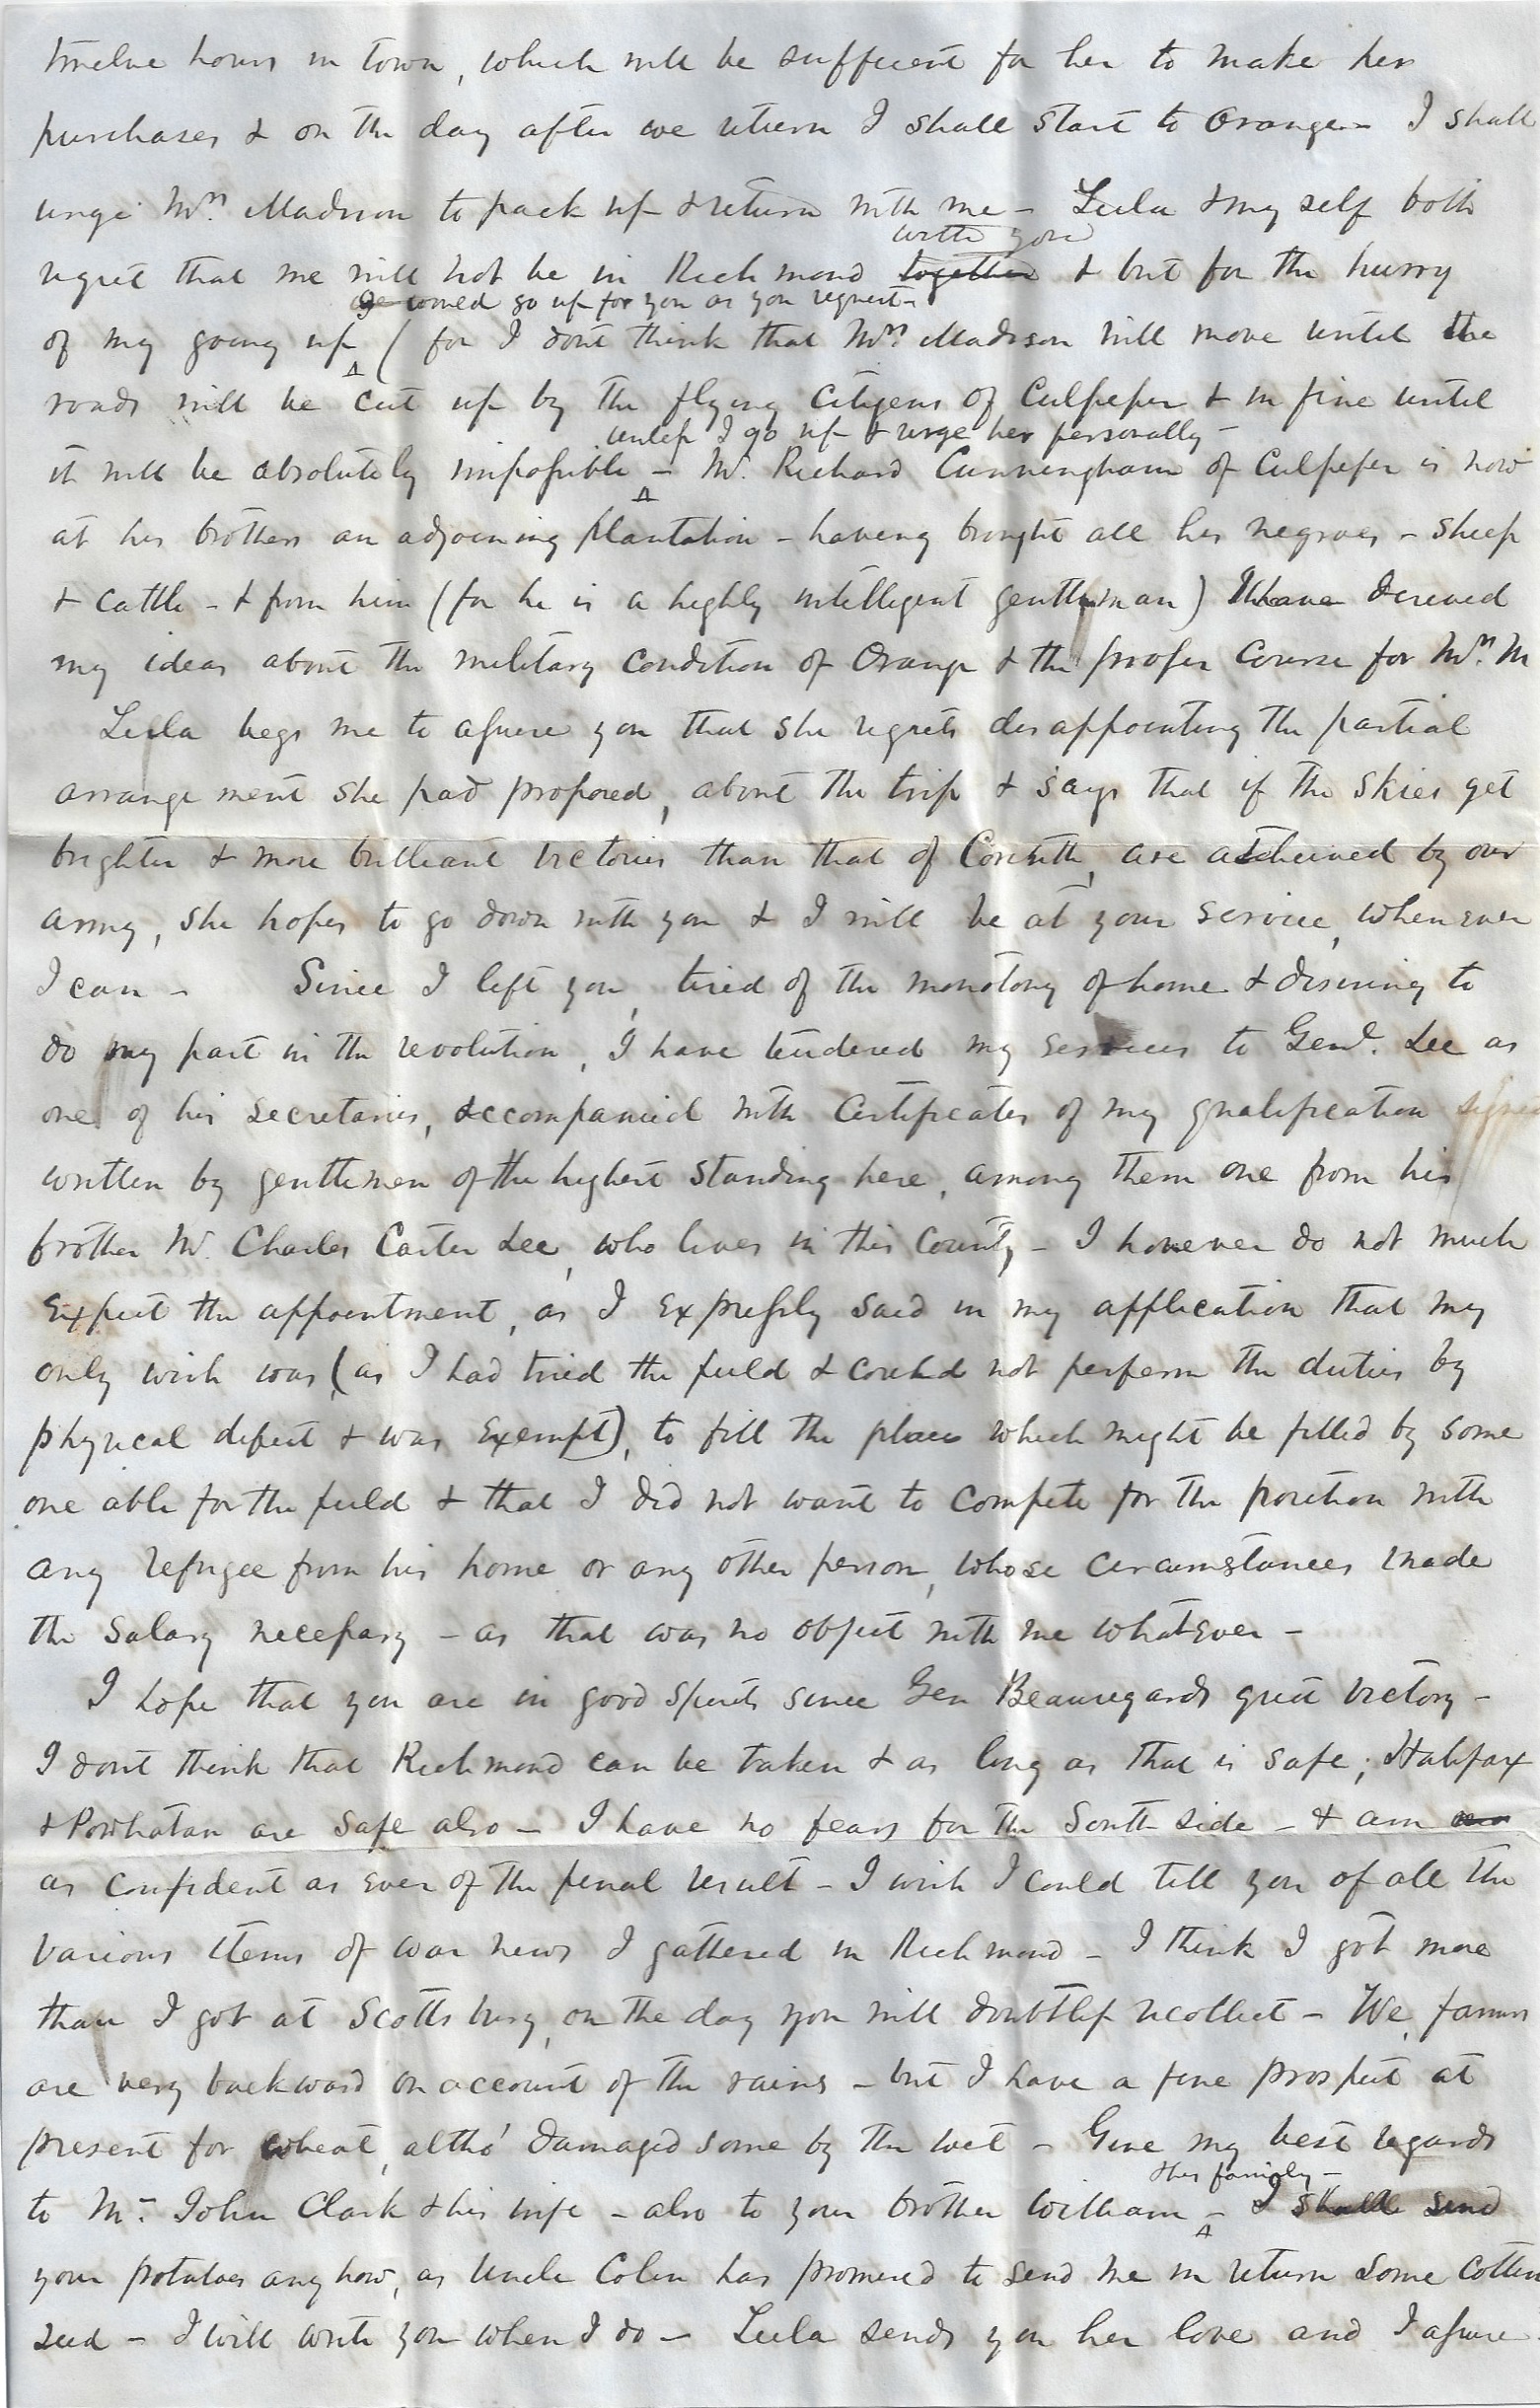 twelve hours in town, which will be sufficient for her to make her
purchases & on the day after we return I shall start to Orange - I shall
urge Mrs. Madison to pack up & return with me - Leila & my self both
with you
regret that we will not be in Richmond together & but for the hurry
we would go up for you as you request -
of my going up (for I dont think that Mrs. Madison will move until the
roads will be cut up by the flying citizens of Culpeper & in fine until
unless I go up & urge her personally -
it will be absolutely impossible - Mr. Richard Cunningham of Culpeper is now
at his brothers an adjoining plantation - having brought all his negroes - sheep
& cattle - & from him (for he is a highly intelligent gentleman) I have derived
my ideas about the military condition of Orange & the proper course for Mrs. M
Leila begs me to assure you that she regrets disappointing the partial
arrangement she had proposed, about the trip & says that if the skies get
brighter & more brilliant victories than that of Corinth, are achieved by our
army, she hopes to go down with you & I will be at your service, whenever
I can - Since I left you, tired of the monotony of home & desiring to
do my part in the revolution, I have tendered my services to Genl. Lee as
one of his secretaries, accompanied with certificates of my qualification
written by gentlemen of the highest standing here, among them one from his
brother Mr. Charles Carter Lee, who lives in this County - I however do not much
expect the appointment, as I expressly said in my application that my
only wish was (as I had tried the field & could not perform the duties by
physical defect & was exempt), to fill the place which might be filled by some
one able for the field & that I did not want to compete for the position with
any refugee from his home or any other person, whose circumstances made
the salary necessary - as that was no object with me whatever -
I hope that you are in good spirits since Gen Beauregards great victory -
I dont think that Richmond can be taken & as long as that is safe; Halifax
& Powhatan are safe also - I have no fears for the South side - & am
as confident as ever of the final result - I wish I could tell you of all the
various items of war news I gathered in Richmond - I think I got more
than I got at Scottsburg, on the day you will doubtless recollect - We farmers
are very backward on account of the rains - but I have a fine prospect at
present for wheat, altho' damaged some by the wet - Give my best regards
& his family -
to Mr. John Clark & his wife - also to your brother William - I shall send
your potatoes any how, as Uncle Colin has promised to send me in return some cotton
seed - I will write you when I do - Leila sends you her love and I assure